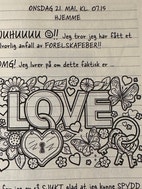 ONSDAG 21. MAI, KL. 07.15
HJEMME
UHUUUU !! Jeg tror jeg har fått et
alvorlig anfall av FORELSKEPEBER!!
OMG! Jeg lurer på om dette faktisk er ...
LOVE
jeg er så SJUKT glad at jeg kunne SPYDD